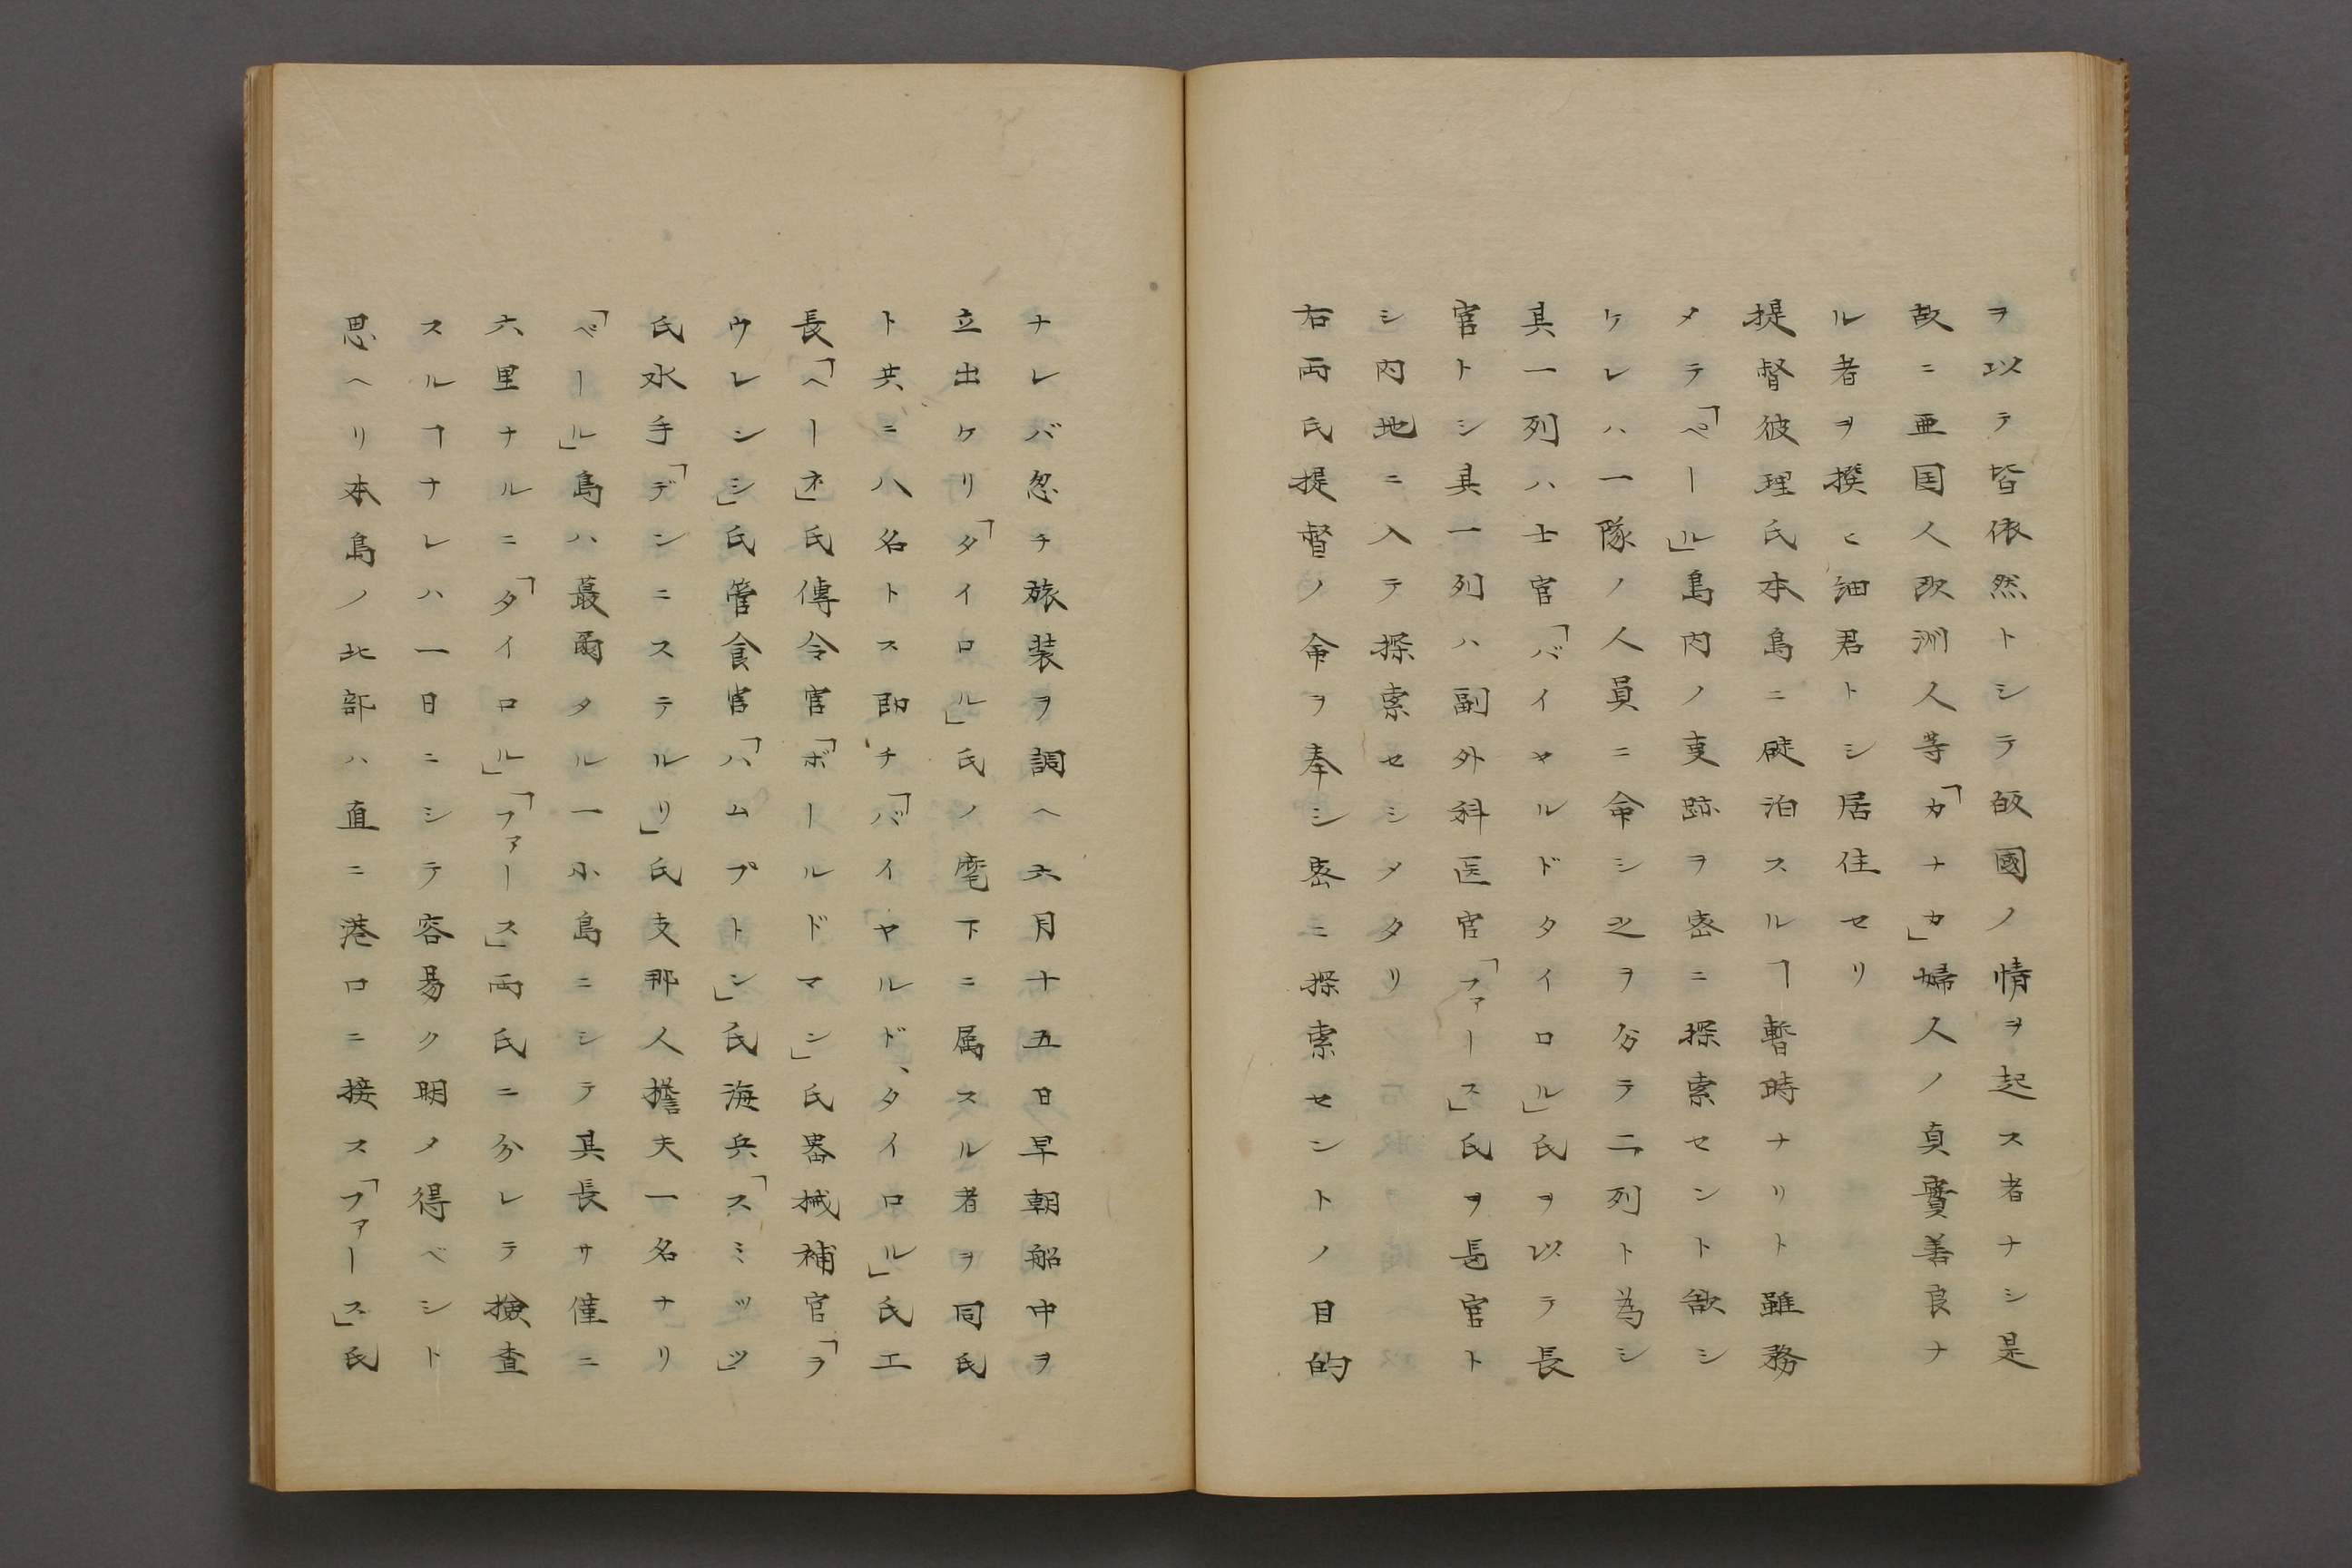 ヲ以テ皆依然トシテ皈國ノ情ヲ起ス者ナシ是
故ニ亜国人欧洲人等「カナカ」婦人ノ真實善良ナ
ル者ヲ撰ヒ細君トシ居住セリ
提督彼理氏本島ニ碇泊スルヿ暫時ナリト雖務
メテ「ペール」島内ノ吏跡ヲ密ニ探索セント欲シ
ケレハ一隊ノ人員ニ命シ之ヲ分テ二列ト為シ
其一列ハ士官「バイヤルドタイロル」氏ヲ以テ長
官トシ其一列ハ副外科医官「ファース」氏ヲ長官ト
シ内地ニ入テ探索セシメタリ
右両氏提督ノ命ヲ奉シ密ニ探索セントノ目的
ナレバ忽チ旅装ヲ調ヘ六月十五日早朝船中ヲ
立出ケリ「タイロル」氏ノ麾下ニ属スル者ヲ同氏
ト共ニ八名トス即チ「バイヤルド、タイロル」氏工
長「ヘーネ」氏傳令官「ボールドマン」氏器械補官「ラ
ウレシシ」氏管食官「ハムプトン」氏海兵「スミッツ」
氏水手「デンニステルリ」氏支那人擔夫一名ナリ
「ベール」島ハ蕞爾タル一小島ニシテ其長サ僅ニ
六里ナルニ「タイロル」「ファース」両氏ニ分レテ撿査
スルヿナレハ一日ニシテ容易ク明メ得ベシト
思ヘリ本島ノ北部ハ直ニ港口ニ接ス「ファース」氏